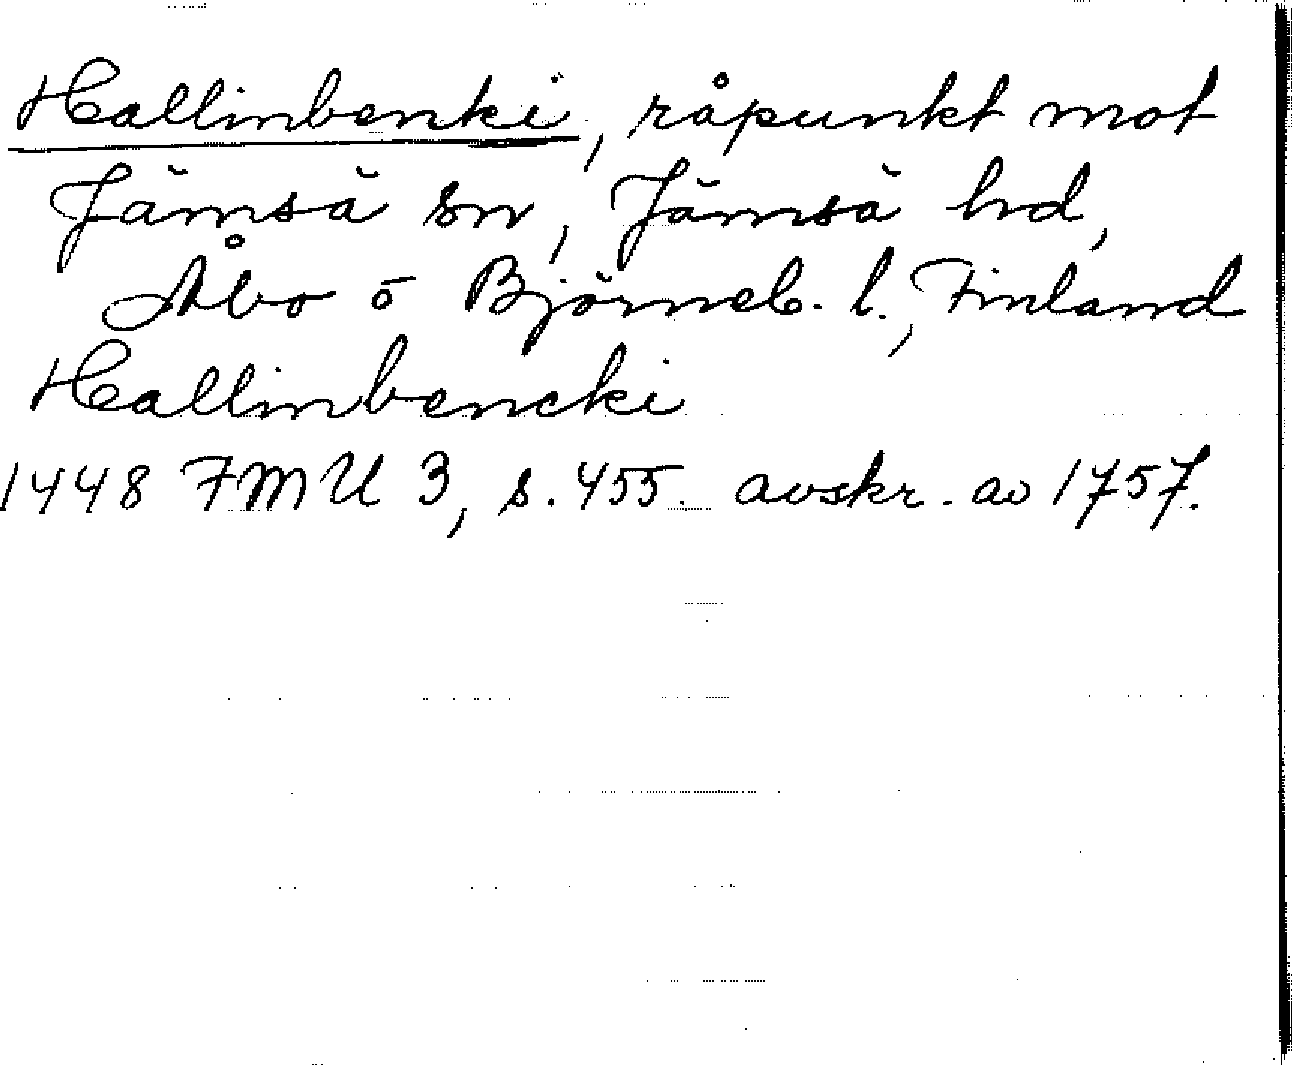 Hallinbenki, råpunkt mot
Jämsä sn, Jämsä hd,
Åbo o Björneb. l., Finland
Hallinbencki
1448 FMU 3, s. 455. avskr. av 1757.